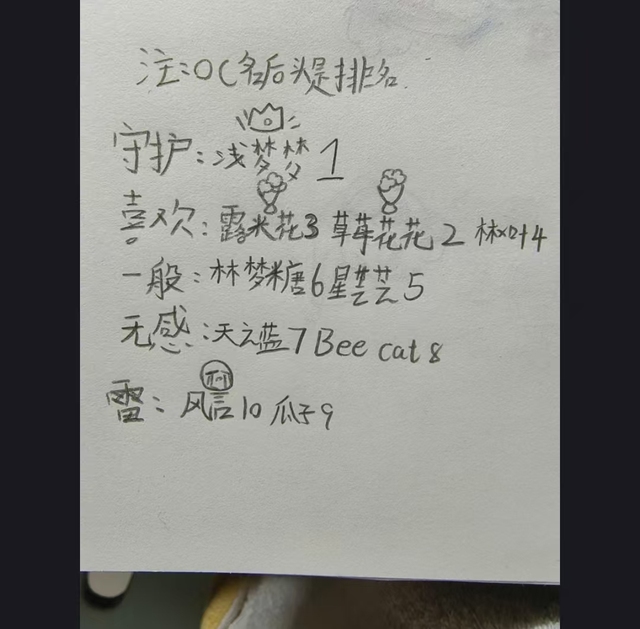 注:OC名后头是排名
守护:浅梦梦1
喜欢:露米花3 草莓花花2 林叶4
一般:林梦糖6星芸芸5
无感:天之蓝7Bee cat8
雷:风言10瓜子9